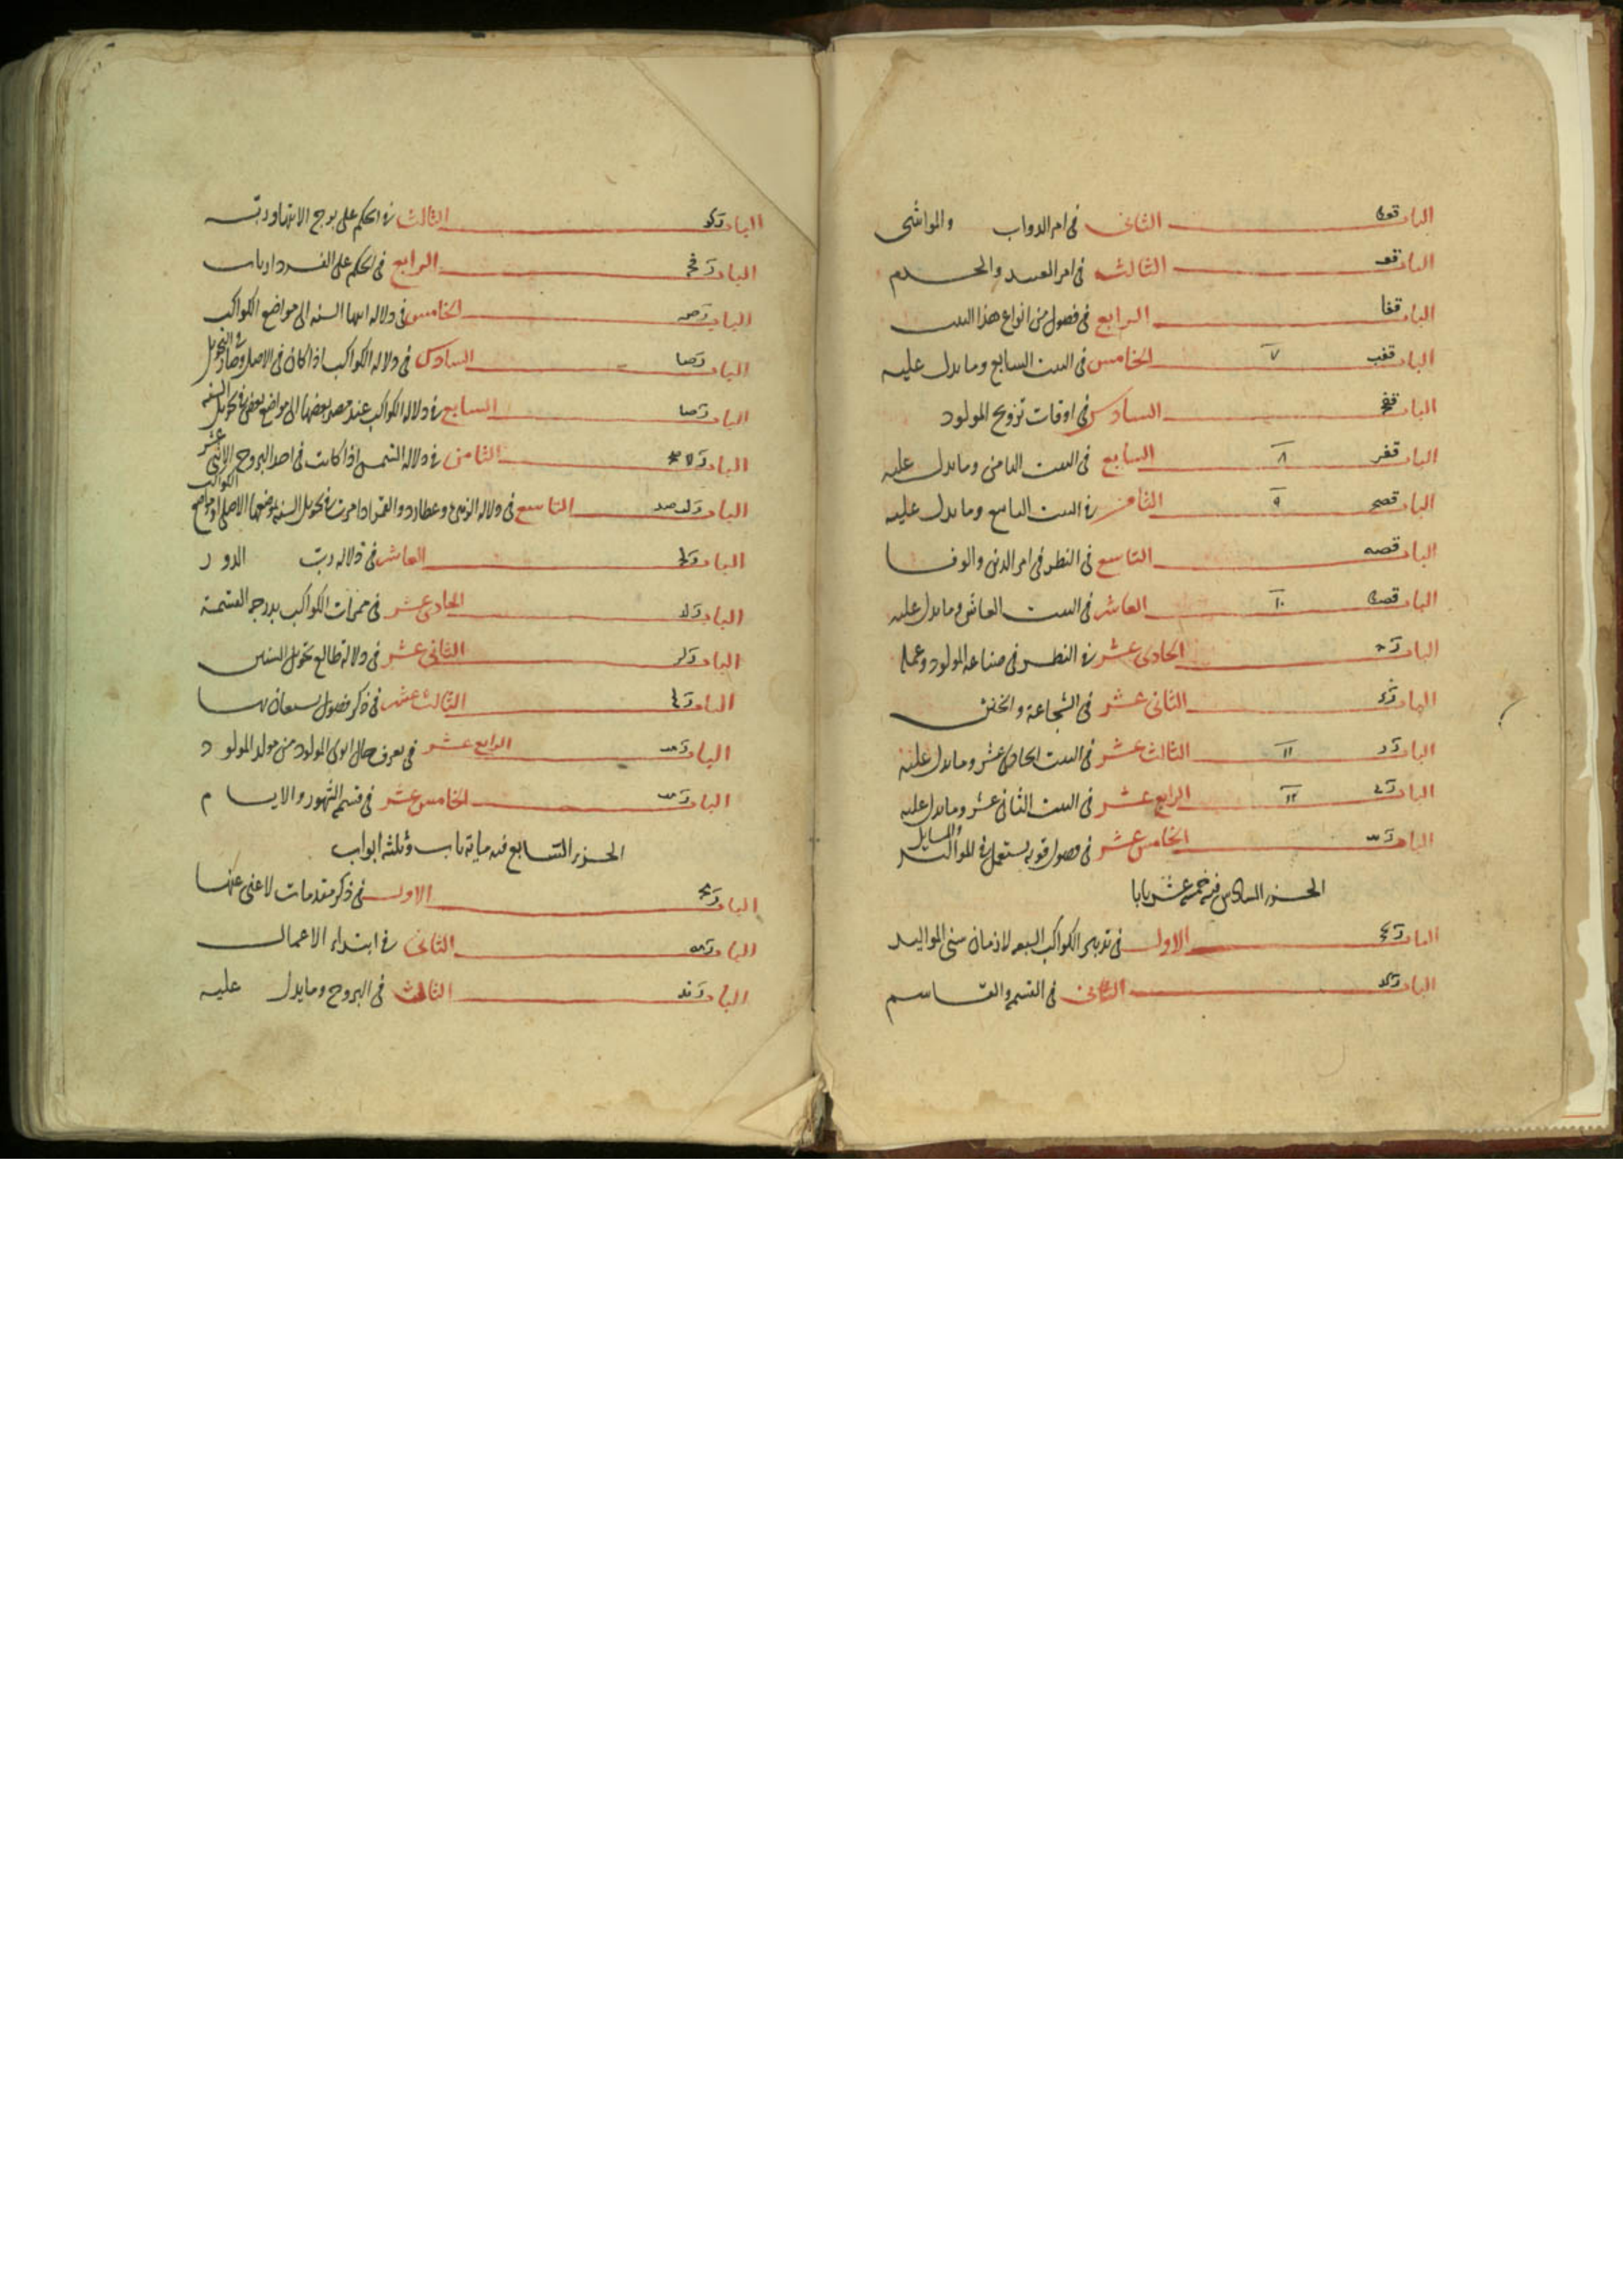 الباب الثانى فى امر الدواب والمواشى
الباب الثالث فى امر العبيد والخدم
الباب قفا الرابع فى فصول من انواع هذا البيت
الباب قفب ٧ الخامس فى البيت السابع وما يدل عليه
الباب السادس فى اوقات تزويج المولود
الباب ٨ السابع فى البيت الثامن وما يدل عليه
الباب ٩ الثامن فى البيت التاسع وما يدل عليه
الباب قصه التاسع فى النظر فى امر الدين والوفا
الباب ١٠ العاشر فى البيت العاشر وما يدل عليه
الباب الحادى عشر فى النظر فى صناعة المولود وعمله
الباب الثانى عشر فى الشجاعة
الباب ١١ الثالث عشر فى البيت الحادى عشر وما يدل عليه
الباب ١٢ الرابع عشر فى البيت الثانى عشر وما يدل عليه
الباب الخامس عشر فى فصول قوية يستعمل فى المواليد والمسايل
الجزء السادس فيه خمسة عشر بابا
الباب الاول فى تدبير الكواكب السبعة لازمان سنى المواليد
الباب الثانى فى القسمة والقاسم
الباب الثالث فى الحكم على برج الانتها وربه
الباب الرابع فى الحكم على الفردارات
الباب الخامس فى دلالة انتها السنة الى مواضع الكواكب
الباب السادس فى دلالة الكواكب اذا كان فى الاصل وصار فى التحويل
الباب السابع فى دلالة الكواكب عند مصير بعضها الى مواضع بعض فى تحويل السنة
الباب الثامن فى دلالة الشمس اذا كانت فى احد البروج الاثنى عشر
الباب التاسع فى دلالة الزهرة وعطارد والقمر اذا مرت فى تحويل السنة بموضعها الاصلى او مواضع الكواكب
الباب العاشر فى دلالة رب الدور
الباب الحادى عشر فى ممرات الكواكب بدرجة القسمة
الباب الثانى عشر فى دلالة طالع تحويل السنين
الباب الثالث عشر فى ذكر فصول يستعان بها
الباب الرابع عشر فى تعرف حال ابوى المولود من مولد المولود
الباب الخامس عشر فى قسمة الشهور والايام
الجزء السابع فيه ماية باب وثلثة ابواب
الباب الاول فى ذكر مقدمات لا غنى عنها
الباب الثانى فى ابتداء الاعمال
الباب الثالث فى البروج وما يدل عليه